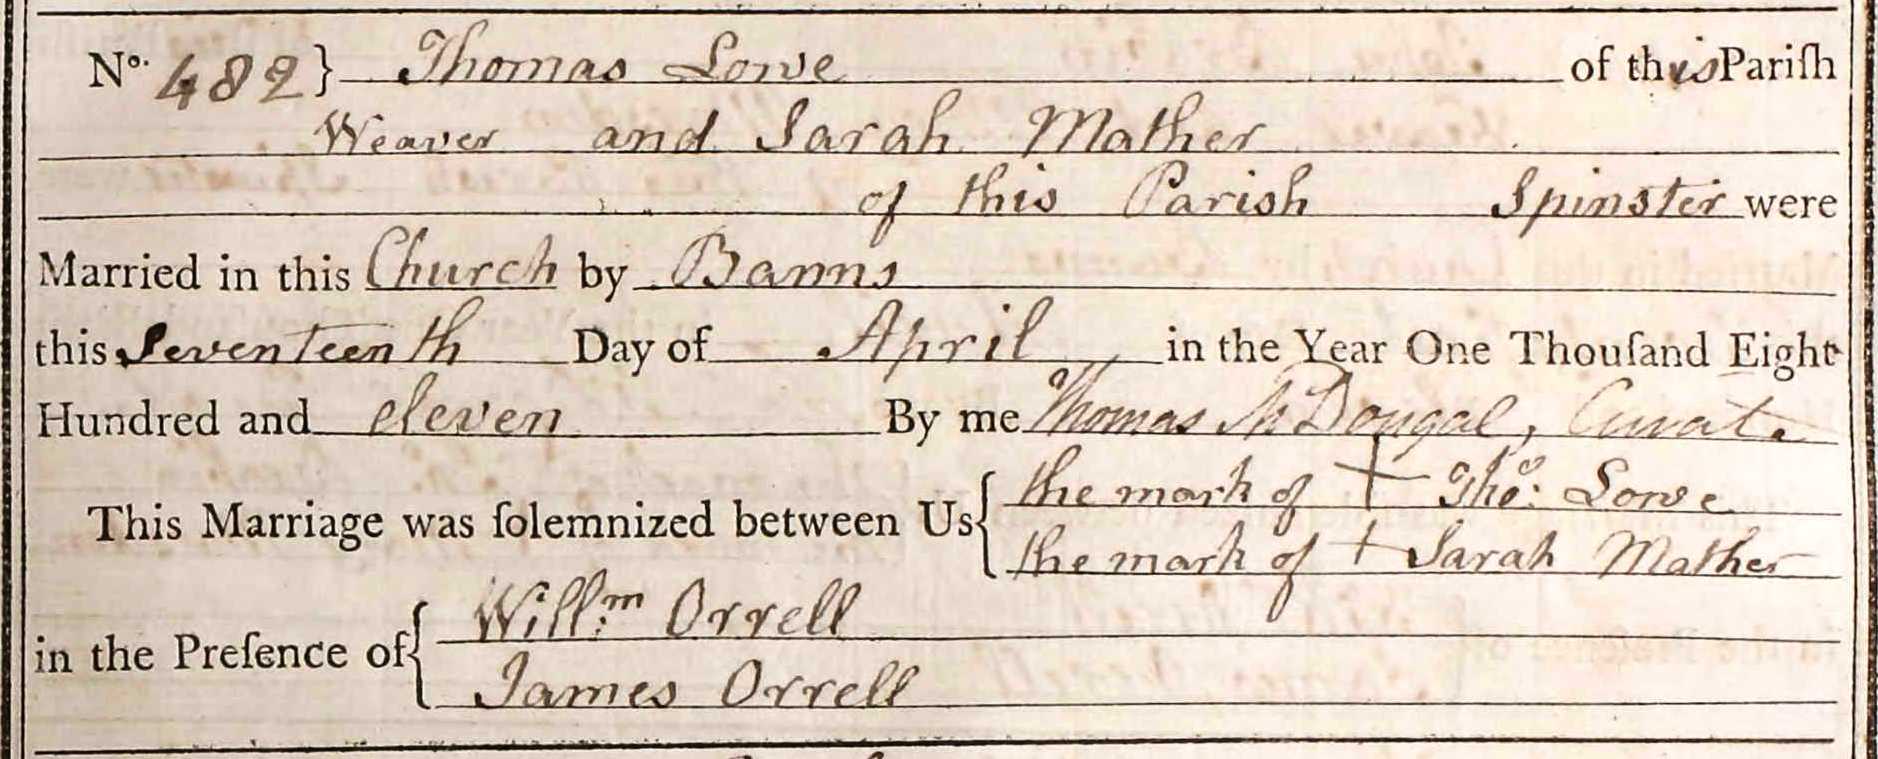 No. 482} Thomas Lowe of this Pariſh
Weaver and Sarah Mather
of this Parish Spinster were
Married in this Church by Banns
this Seventeenth Day of April in the Year One Thouſand Eight
Hundred and eleven By me Thomas McDougal, Curate
This Marriage was ſolemnized between Us { the mark of + Thos: Lowe
the mark of + Sarah Mather
in the Preſence of { Will:m Orrell
James Orrell